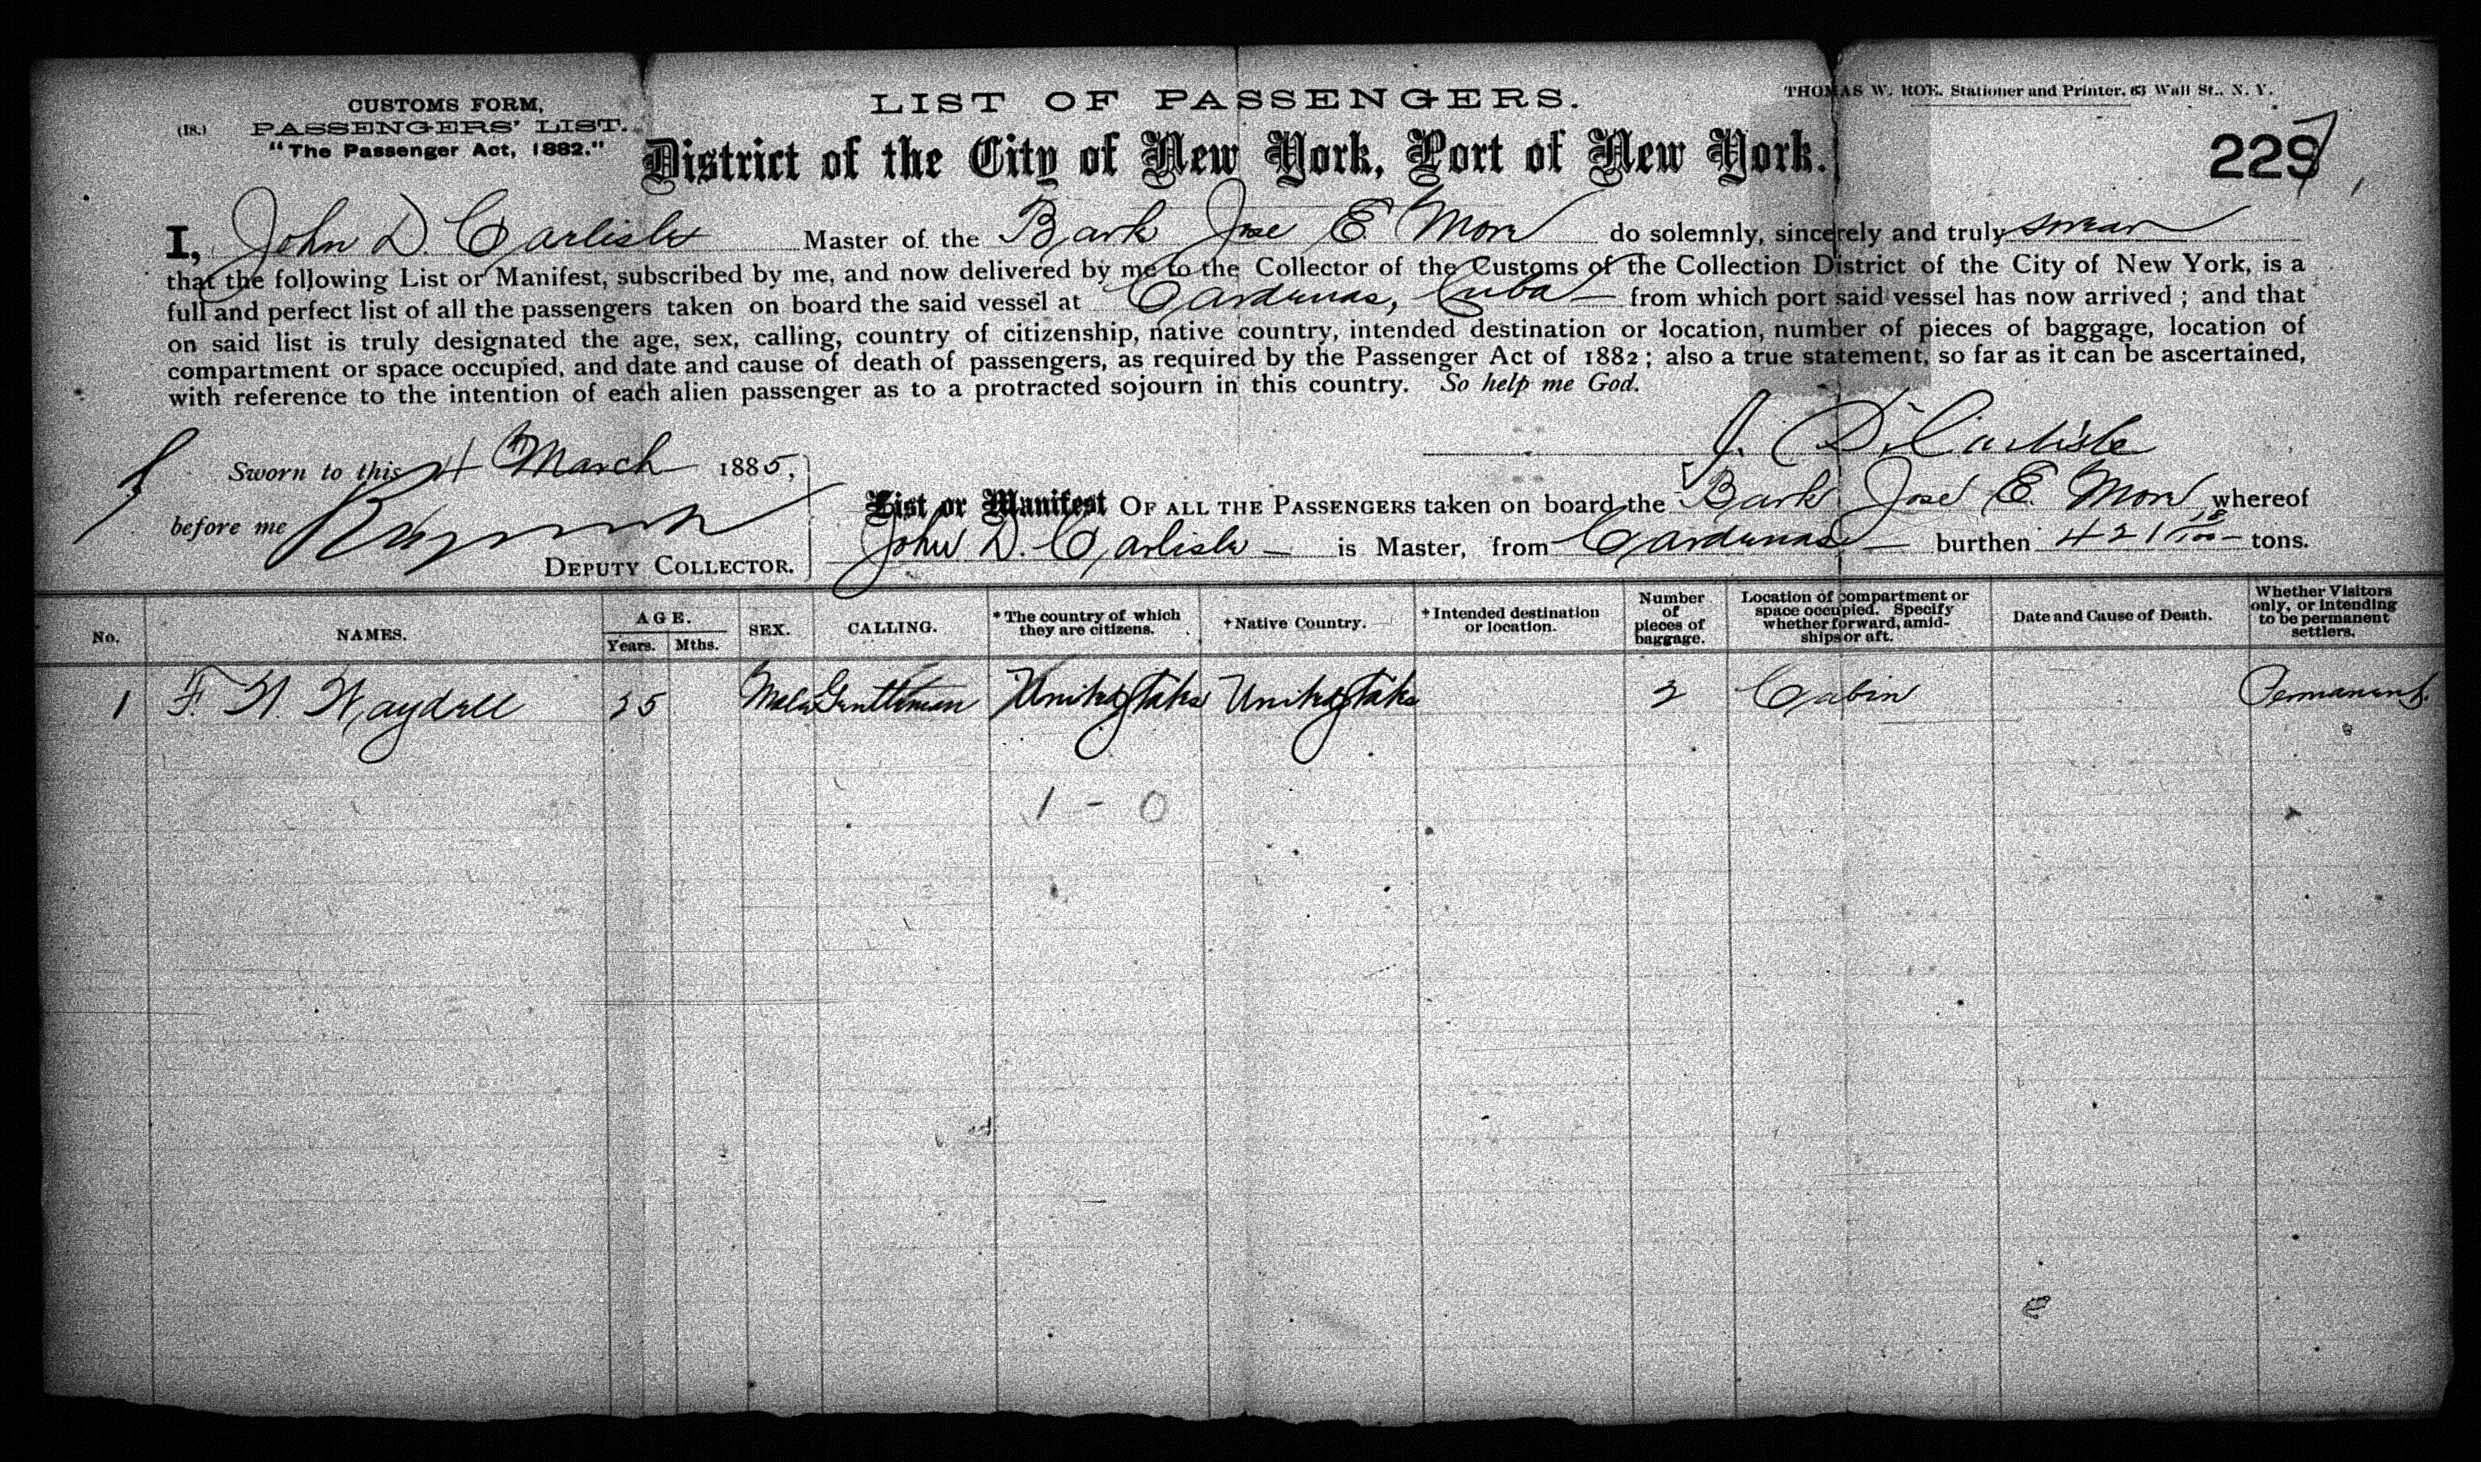 CUSTOMS FORM,
(18.) PASSENGERS' LIST.
"The Passenger Act, 1882."
LIST OF PASSENGERS.
THOMAS W. ROE. Stationer and Printer, 63 Wall St., N. Y.
District of the City of New York, Port of New York.
229
I, John D. Carlisle Master of the Bark Jose E. More do solemnly, sincerely and truly swear
that the following List or Manifest, subscribed by me, and now delivered by me to the Collector of the Customs of the Collection District of the City of New York, is a
full and perfect list of all the passengers taken on board the said vessel at Cardenas, Cuba from which port said vessel has now arrived ; and that
on said list is truly designated the age, sex, calling, country of citizenship, native country, intended destination or location, number of pieces of baggage, location of
compartment or space occupied, and date and cause of death of passengers, as required by the Passenger Act of 1882 ; also a true statement, so far as it can be ascertained,
with reference to the intention of each alien passenger as to a protracted sojourn in this country. So help me God.
J. D. Carlisle
Sworn to this 4 March 1885,
before me
DEPUTY COLLECTOR.
List or Manifest OF ALL THE PASSENGERS taken on board the Bark Jose E. More, whereof
John D. Carlisle is Master, from Cardenas burthen 421 tons.
No. NAMES. AGE. Years. Mths. SEX. CALLING. * The country of which they are citizens. † Native Country. † Intended destination or location. Number of pieces of baggage. Location of compartment or space occupied. Specify whether forward, amidships or aft. Date and Cause of Death. Whether Visitors only, or intending to be permanent settlers.
1 F. W. Waydell 35 Male Gentleman United States United States 2 Cabin Permanent
1 - 0